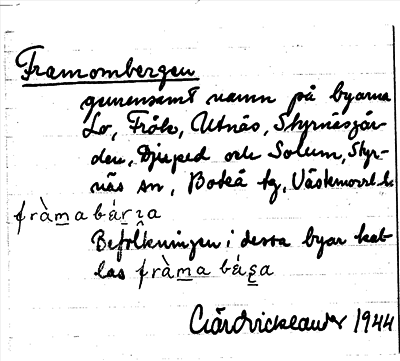 Framombergen
gemensamt namn på byarna
Lo, Frök, Utnäs, Styrnäsjär-
den, Djuped och Solum, Styr-
näs sn, Boteå tg, Västernorrl. l.
fràma bária
Befolkningen i dessa byar kal-
las fràma bása
1944